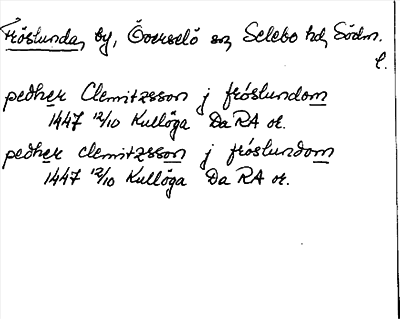 Fröslunda, by, Överselö sn, Selebo hd, Södm.
l.
pedher Clemitzsson j fróslundom
1447 12/10 Kullöga Da RA or.
pedher clemitzsson j fróslundom
1447 12/10 Kullöga Da RA or.